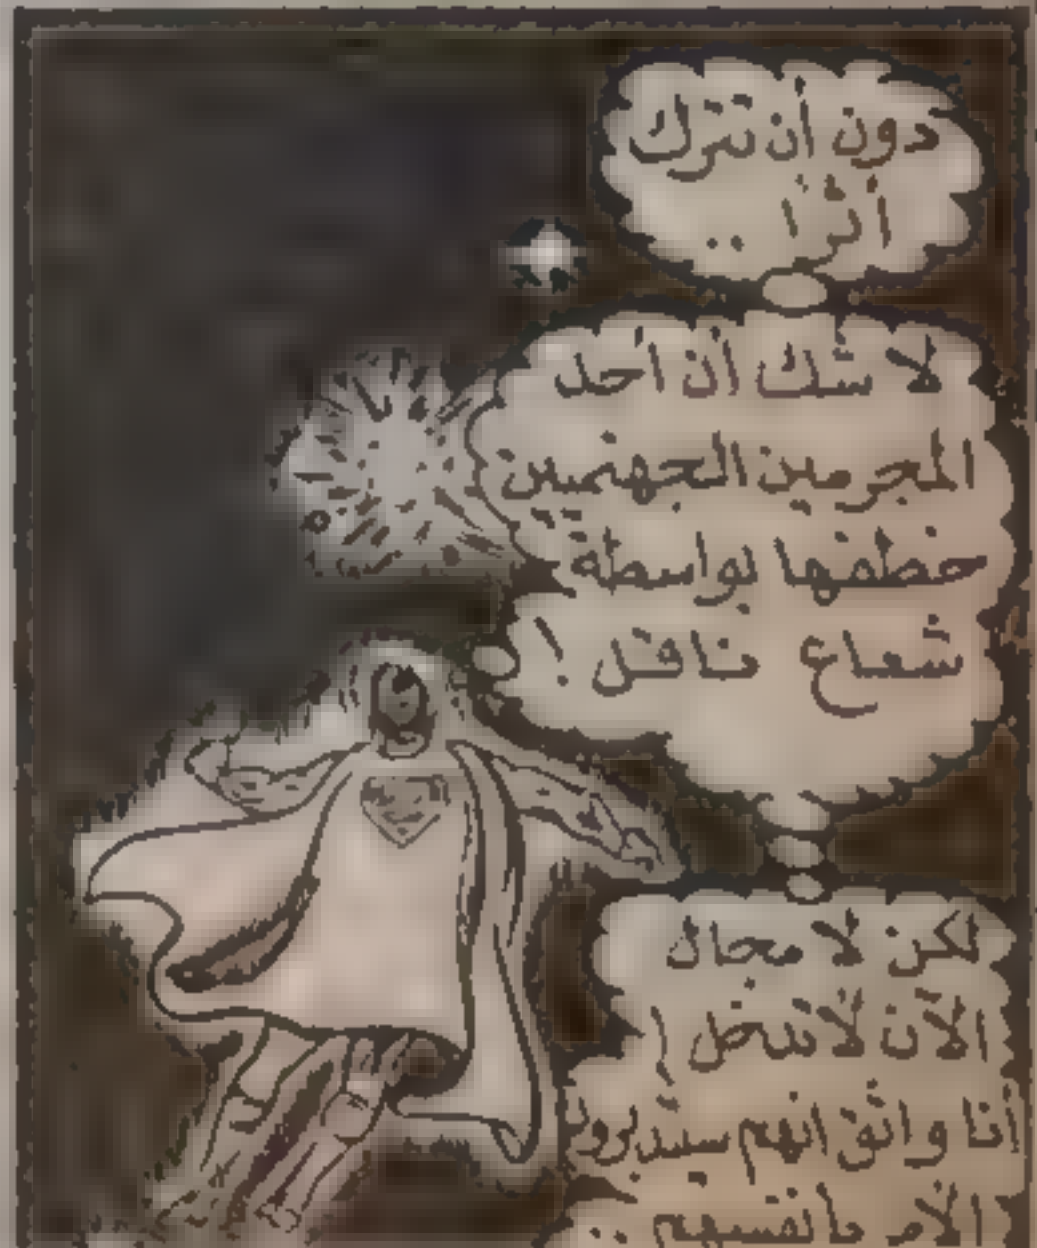 دون أن تترك
أثرا ..
لا شك أن أحد
المجرمين الجهنميين
خطفها بواسطة
شعاع ناقل !
لكن لا مجال
الآن لأتدخل !
أنا واثق انهم سيتدبرون
الأمر بأنفسهم ..